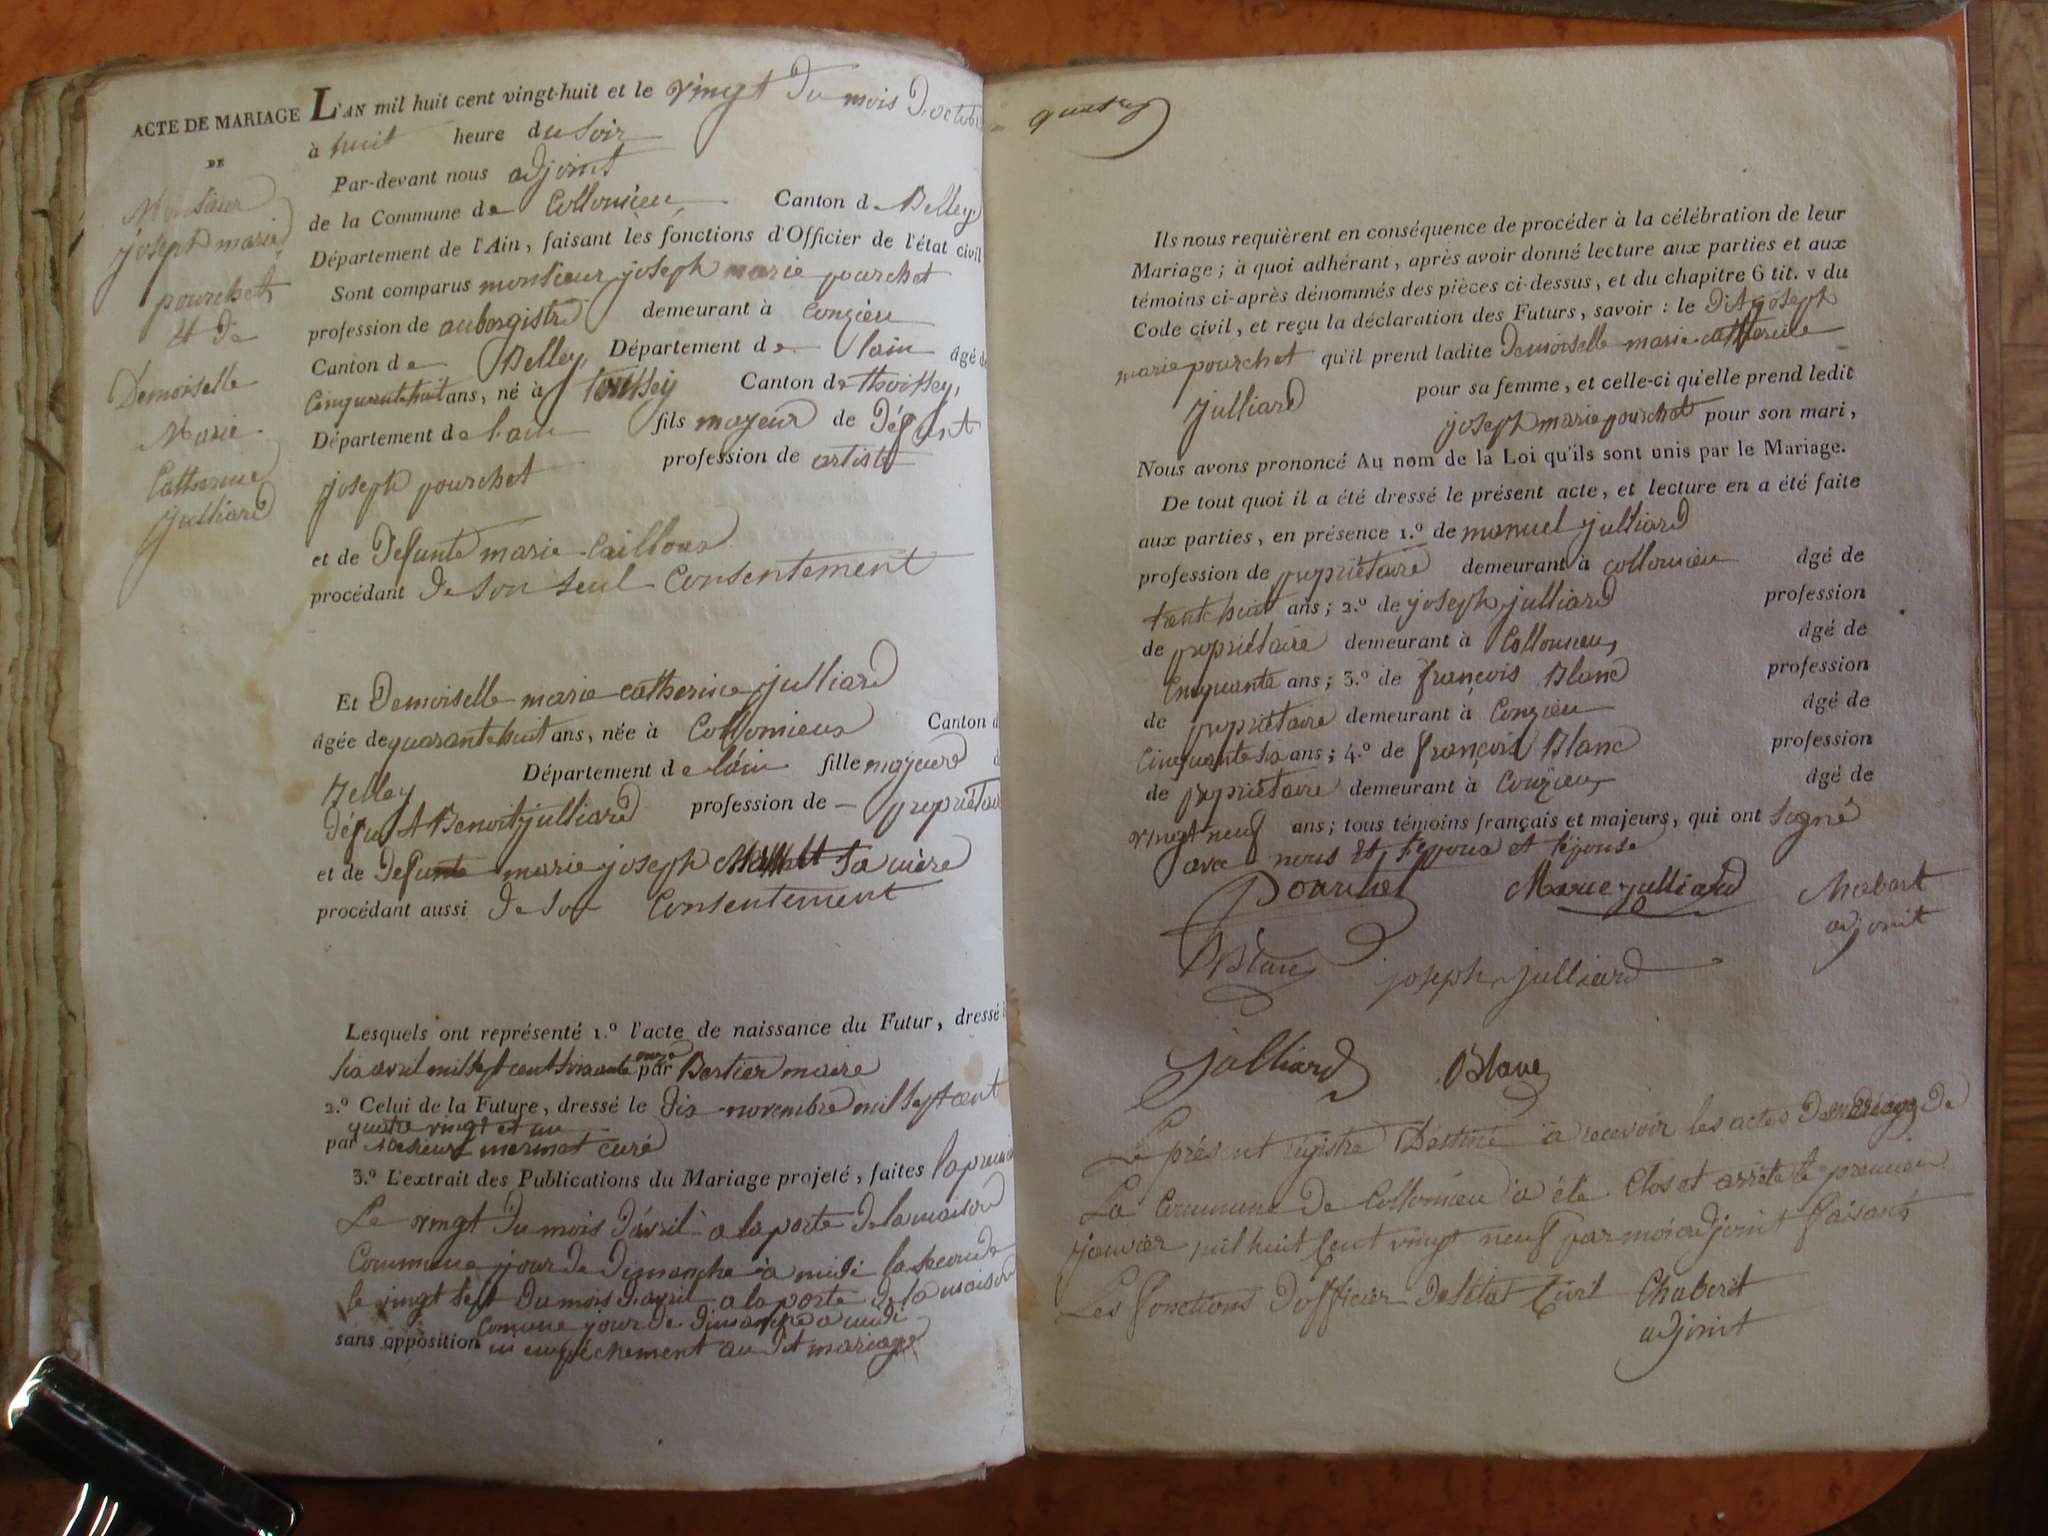 ACTE DE MARIAGE
DE
Monsieur
joseph marie
pourchet
Et de
Demoiselle
Marie
Catherine
Julliard
L'AN mil huit cent vingt-huit et le vingt du mois d'octobre
à huit heure du soir
Par-devant nous adjoint
de la Commune de Collomieu Canton de Belley
Département de l'Ain, faisant les fonctions d'Officier de l'état civil
Sont comparus monsieur joseph marie pourchet
profession de aubergiste demeurant à Conzieu
Canton de Belley, Département de lain âgé de
Cinquantehuit ans, né à Canton de thoissey,
Département de lain fils majeur de défunt
joseph pourchet profession de artiste
et de Defunte marie Cailloux
procédant de son seul Consentement
Et Demoiselle marie catherine julliard
âgée de quarantehuit ans, née à Collomieux Canton d
Belley Département de lain fille majeure d
défunt Benoit julliard profession de — propriétai
et de Defunte marie joseph sa mère
procédant aussi de son Consentement
Lesquels ont représenté 1.º l'acte de naissance du Futur, dressé l
six avril mil sept cent soixante onze par Bertier maire
2.º Celui de la Future, dressé le dix novembre mil sept cent
quatre vingt et un
par mermet curé
3.º L'extrait des Publications du Mariage projeté, faites la premi
Le vingt du mois davril a la porte de la maison
Commune jour de Dimanche à midi la seconde
le vingt sept du mois davril a la porte de la maison
Comune jour de dimanche a midi
sans opposition ni empechement au dit mariage
Ils nous requièrent en conséquence de procéder à la célébration de leur
Mariage ; à quoi adhérant, après avoir donné lecture aux parties et aux
témoins ci-après dénommés des pièces ci-dessus, et du chapitre 6 tit. v du
Code civil, et reçu la déclaration des Futurs, savoir : le dit joseph
marie pourchet qu'il prend ladite Demoiselle marie catherine
julliard pour sa femme, et celle-ci qu'elle prend ledit
joseph marie pourchet pour son mari,
Nous avons prononcé Au nom de la Loi qu'ils sont unis par le Mariage.
De tout quoi il a été dressé le présent acte, et lecture en a été faite
aux parties, en présence 1.º de manuel julliard
profession de propriétaire demeurant à collomieu âgé de
trentehuit ans ; 2.º de joseph julliard profession
de propriétaire demeurant à Collomieu, âgé de
Cinquante ans ; 3.º de françois Blanc profession
de propriétaire demeurant à Conzieu âgé de
Cinquantesix ans ; 4.º de françois Blanc profession
de propriétaire demeurant à Conzieu, âgé de
vingt neuf ans ; tous témoins français et majeurs, qui ont signé
avec nous Et lepoux et lepouse
Pourchet Marie julliard Chabert
adjoint
Blanc joseph julliard
julliard Blanc
Le présent registre Destiné à recevoir les actes de mariage de
La Commune de Collomieu a été Clos et arrêté le premier
janvier mil huit Cent vingt neuf par moi adjoint faisant
Les fonctions dofficier de létat Civil Chabert
adjoint